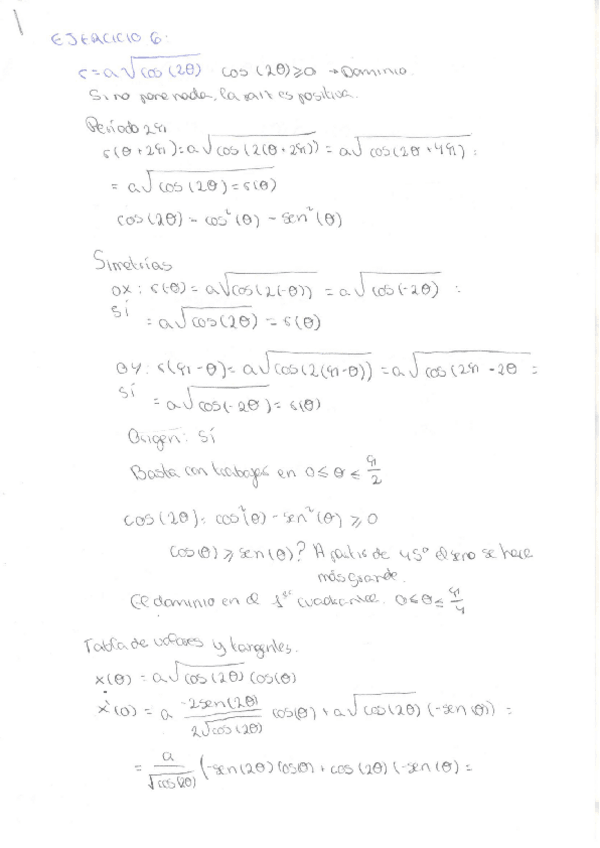 EJERCICIO 6:
r = a√cos(2θ) cos(2θ) ≥ 0 → Dominio.
Si no pone nada, la raíz es positiva.
Período 2π
r(θ + 2π) = a√cos(2(θ + 2π)) = a√cos(2θ + 4π) =
= a√cos(2θ) = r(θ)
cos(2θ) = cos²(θ) - sen²(θ)
Simetrías
OX: r(-θ) = a√cos(2(-θ)) = a√cos(-2θ) =
Sí = a√cos(2θ) = r(θ)
OY: r(π - θ) = a√cos(2(π-θ)) = a√cos(2π - 2θ =
Sí = a√cos(-2θ) = r(θ)
Origen: Sí
Basta con trabajar en 0 ≤ θ ≤ π/2
cos(2θ) = cos²(θ) - sen²(θ) ≥ 0
cos(θ) ≥ sen(θ)? A partir de 45° el seno se hace
más grande.
El dominio en el 1er cuadrante. 0 ≤ θ ≤ π/4
Tabla de valores y tangentes.
x(θ) = a√cos(2θ) cos(θ)
ẋ(θ) = a -2sen(2θ)/2√cos(2θ) cos(θ) + a√cos(2θ) (-sen(θ)) =
= a/√cos(2θ) (-sen(2θ) cosθ) + cos(2θ) (-sen(θ) =